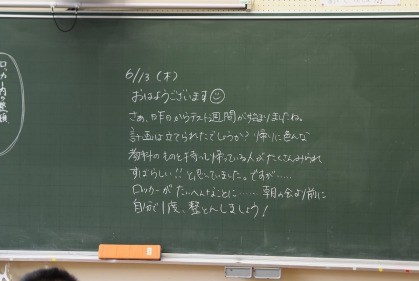 6/13（木）
おはようございます
さぁ、昨日からテスト週間が始まりましたね。
計画は立てられたでしょうか？帰りに色んな
教科のものを持って帰っている人がたくさんみられ
すばらしい!!と思っていました。ですが……
ロッカーが たいへんなことに…… 朝の会より前に
自分で1度、整とんしましょう！
ロッカー内の整頓